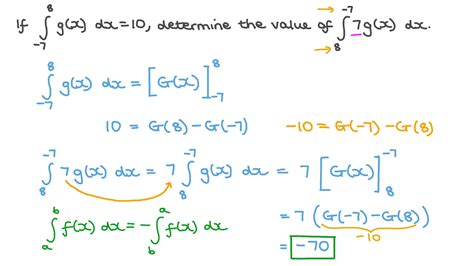 If ∫₋₇⁸ g(x) dx = 10, determine the value of ∫₈⁻⁷ 7g(x) dx.
∫₋₇⁸ g(x) dx = [G(x)]₋₇⁸
10 = G(8) - G(-7)    -10 = G(-7) - G(8)
∫₈⁻⁷ 7g(x) dx = 7 ∫₈⁻⁷ g(x) dx = 7 [G(x)]₈⁻⁷
∫ₐᵇ f(x) dx = - ∫_b^a f(x) dx    = 7 (G(-7) - G(8))
-10
= -70